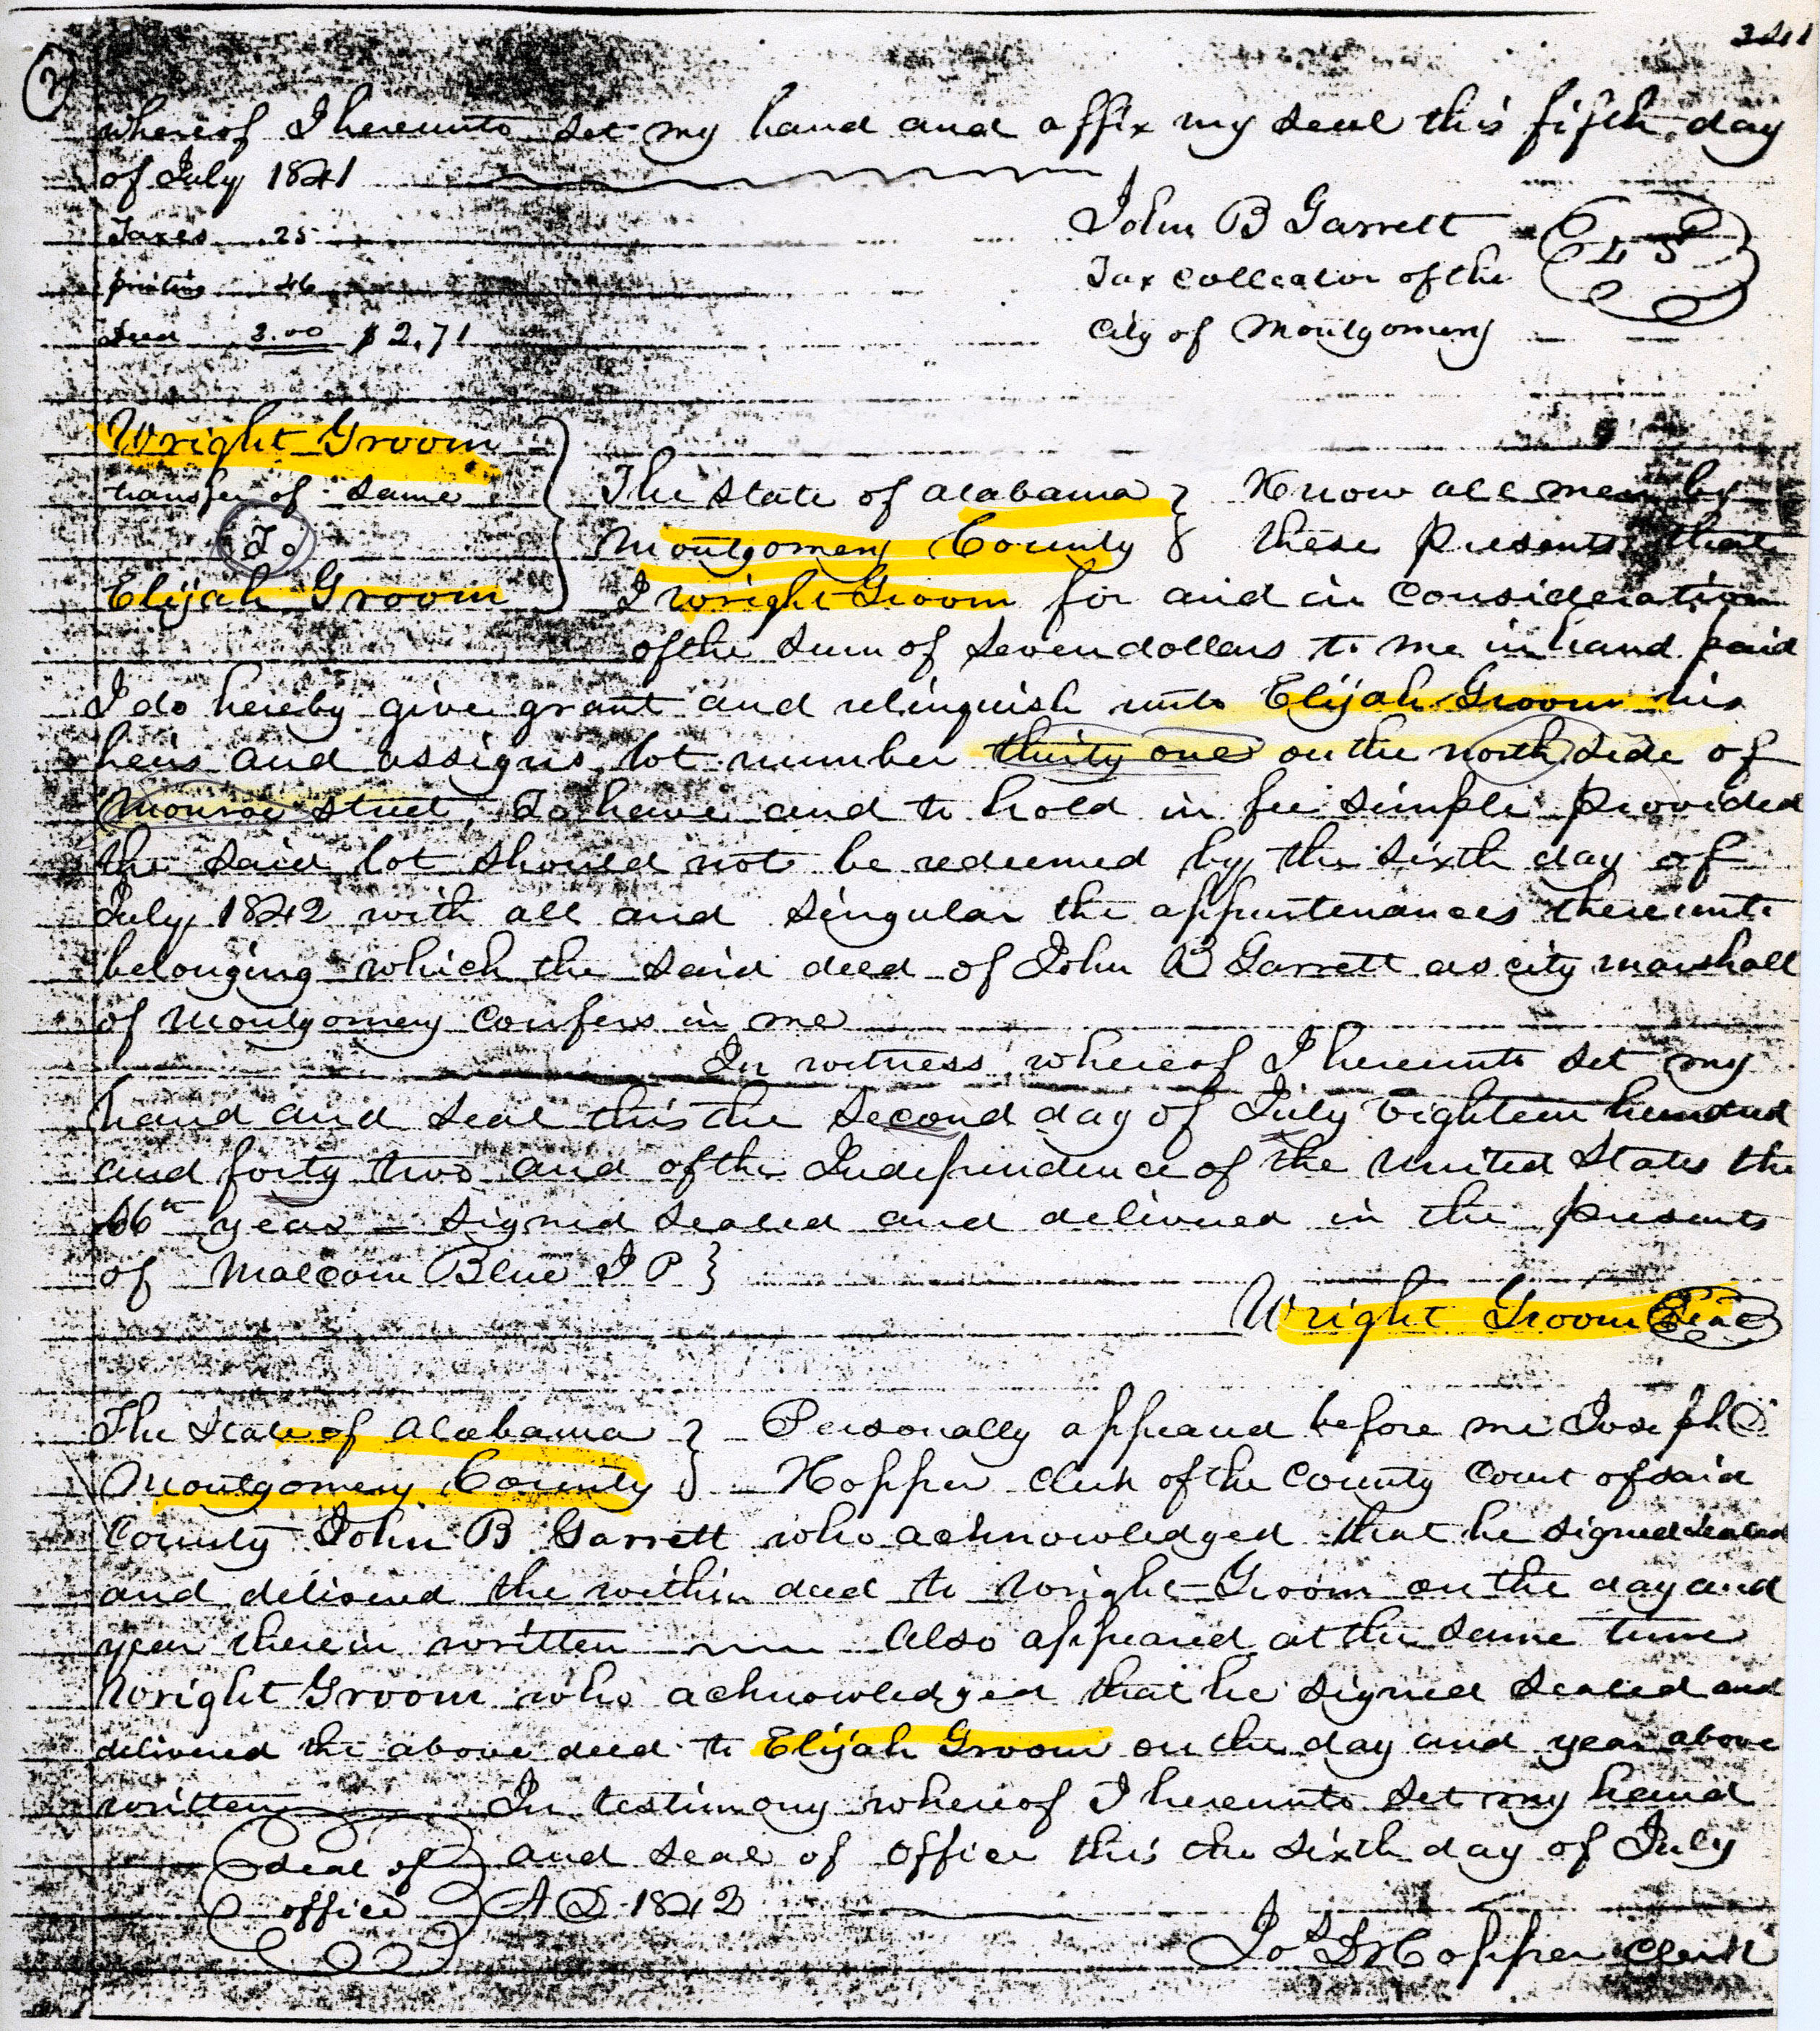 241
2
whereof I hereunto set my hand and affix my seal this fifth day
of July 1841
John B Garrett
L S
Taxes .25
Tax collector of the
printing 46
City of Montgomery
deed 2.00 $ 2.71
Wright Groom
transfer of same
The State of Alabama } Know all men by
To
Montgomery County } these presents that
Elijah Groom
I Wright Groom for and in consideration
of the sum of seven dollars to me in hand paid
I do hereby give grant and relinquish unto Elijah Groom his
heirs and assigns lot number thirty one on the north side of
Monroe Street, To have and to hold in fee simple provided
the said lot should not be redeemed by the sixth day of
July 1842 with all and singular the appurtenances thereunto
belonging which the said deed of John B Garrett as city marshall
of Montgomery confers in me
In witness whereof I hereunto set my
hand and seal this the second day of July Eighteen hundred
and forty two and of the Independence of the United States the
66th year - Signed sealed and delivered in the presents
of Malcom Blue J P }
Wright Groom Seal
The State of Alabama } Personally appeared before me Joseph
Montgomery County } Hopper Clerk of the County Court of said
County John B Garrett who acknowledged that he signed sealed
and delivered the within deed to Wright Groom on the day and
year therein written Also appeared at the same time
Wright Groom who acknowledged that he signed sealed and
delivered the above deed to Elijah Groom on the day and year above
written In testimony whereof I hereunto set my hand
Seal of and seal of office this the sixth day of July
office A D 1842
Hopper Clerk